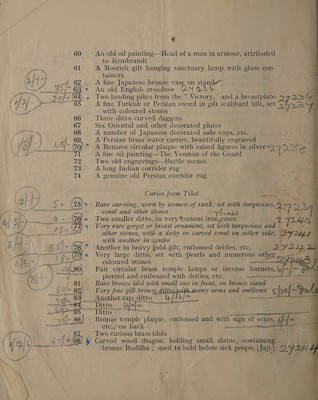 6
60 An old oil painting—Head of a man in armour, attributed
to Rembrandt
61 A Moorish gilt hanging sanctuary lamp with glass con-
tainers
62 A fine Japanese bronze vase on stand
63 An old English crossbow 24235
64 Two landing pikes from the "Victory," and a breastplate 27236
65 A fine Turkish or Persian sword in gilt scabbard hilt, set 27237
with coloured stones
66 Three ditto curved daggers
67 Six Oriental and other decorated plates
68 A number of Japanese decorated sake cups, etc.
69 A Persian brass water carrier, beautifully engraved
70 A Benares circular plaque with raised figures in silver 27238
71 A fine oil painting—The Yeoman of the Guard
72 Two old engravings—Battle scenes
73 A long Indian corridor rug
74 A genuine old Persian corridor rug
Curios from Tibet.
75 Rare ear-ring, worn by women of rank, set with turquoises, 27239
coral and other stones
76 Two smaller ditto, in very various iron cases 27240
77 Very rare gorget or breast ornament, set with turquoises and
other stones, with a deity in carved coral on either side, 27241
with another in centre
78 Another in heavy gold gilt, embossed deities, etc. 27242
79 Very large ditto, set with pearls and numerous other
coloured stones
80 Pair circular brass temple lamps or incense burners,
pierced and embossed with deities, etc.
81 Rare bronze idol with small one in front, on bronze stand
82 Very fine gilt bronze ditto with many arms and emblems
83 Another rare ditto
84 Ditto
85 Ditto
86 Bronze temple plaque, embossed and with sign of sexes,
etc., on back
87 Two curious brass idols
88 Carved wood dragon, holding small shrine, containing
bronze Buddha; used to hold before sick people (Jap.) 27244